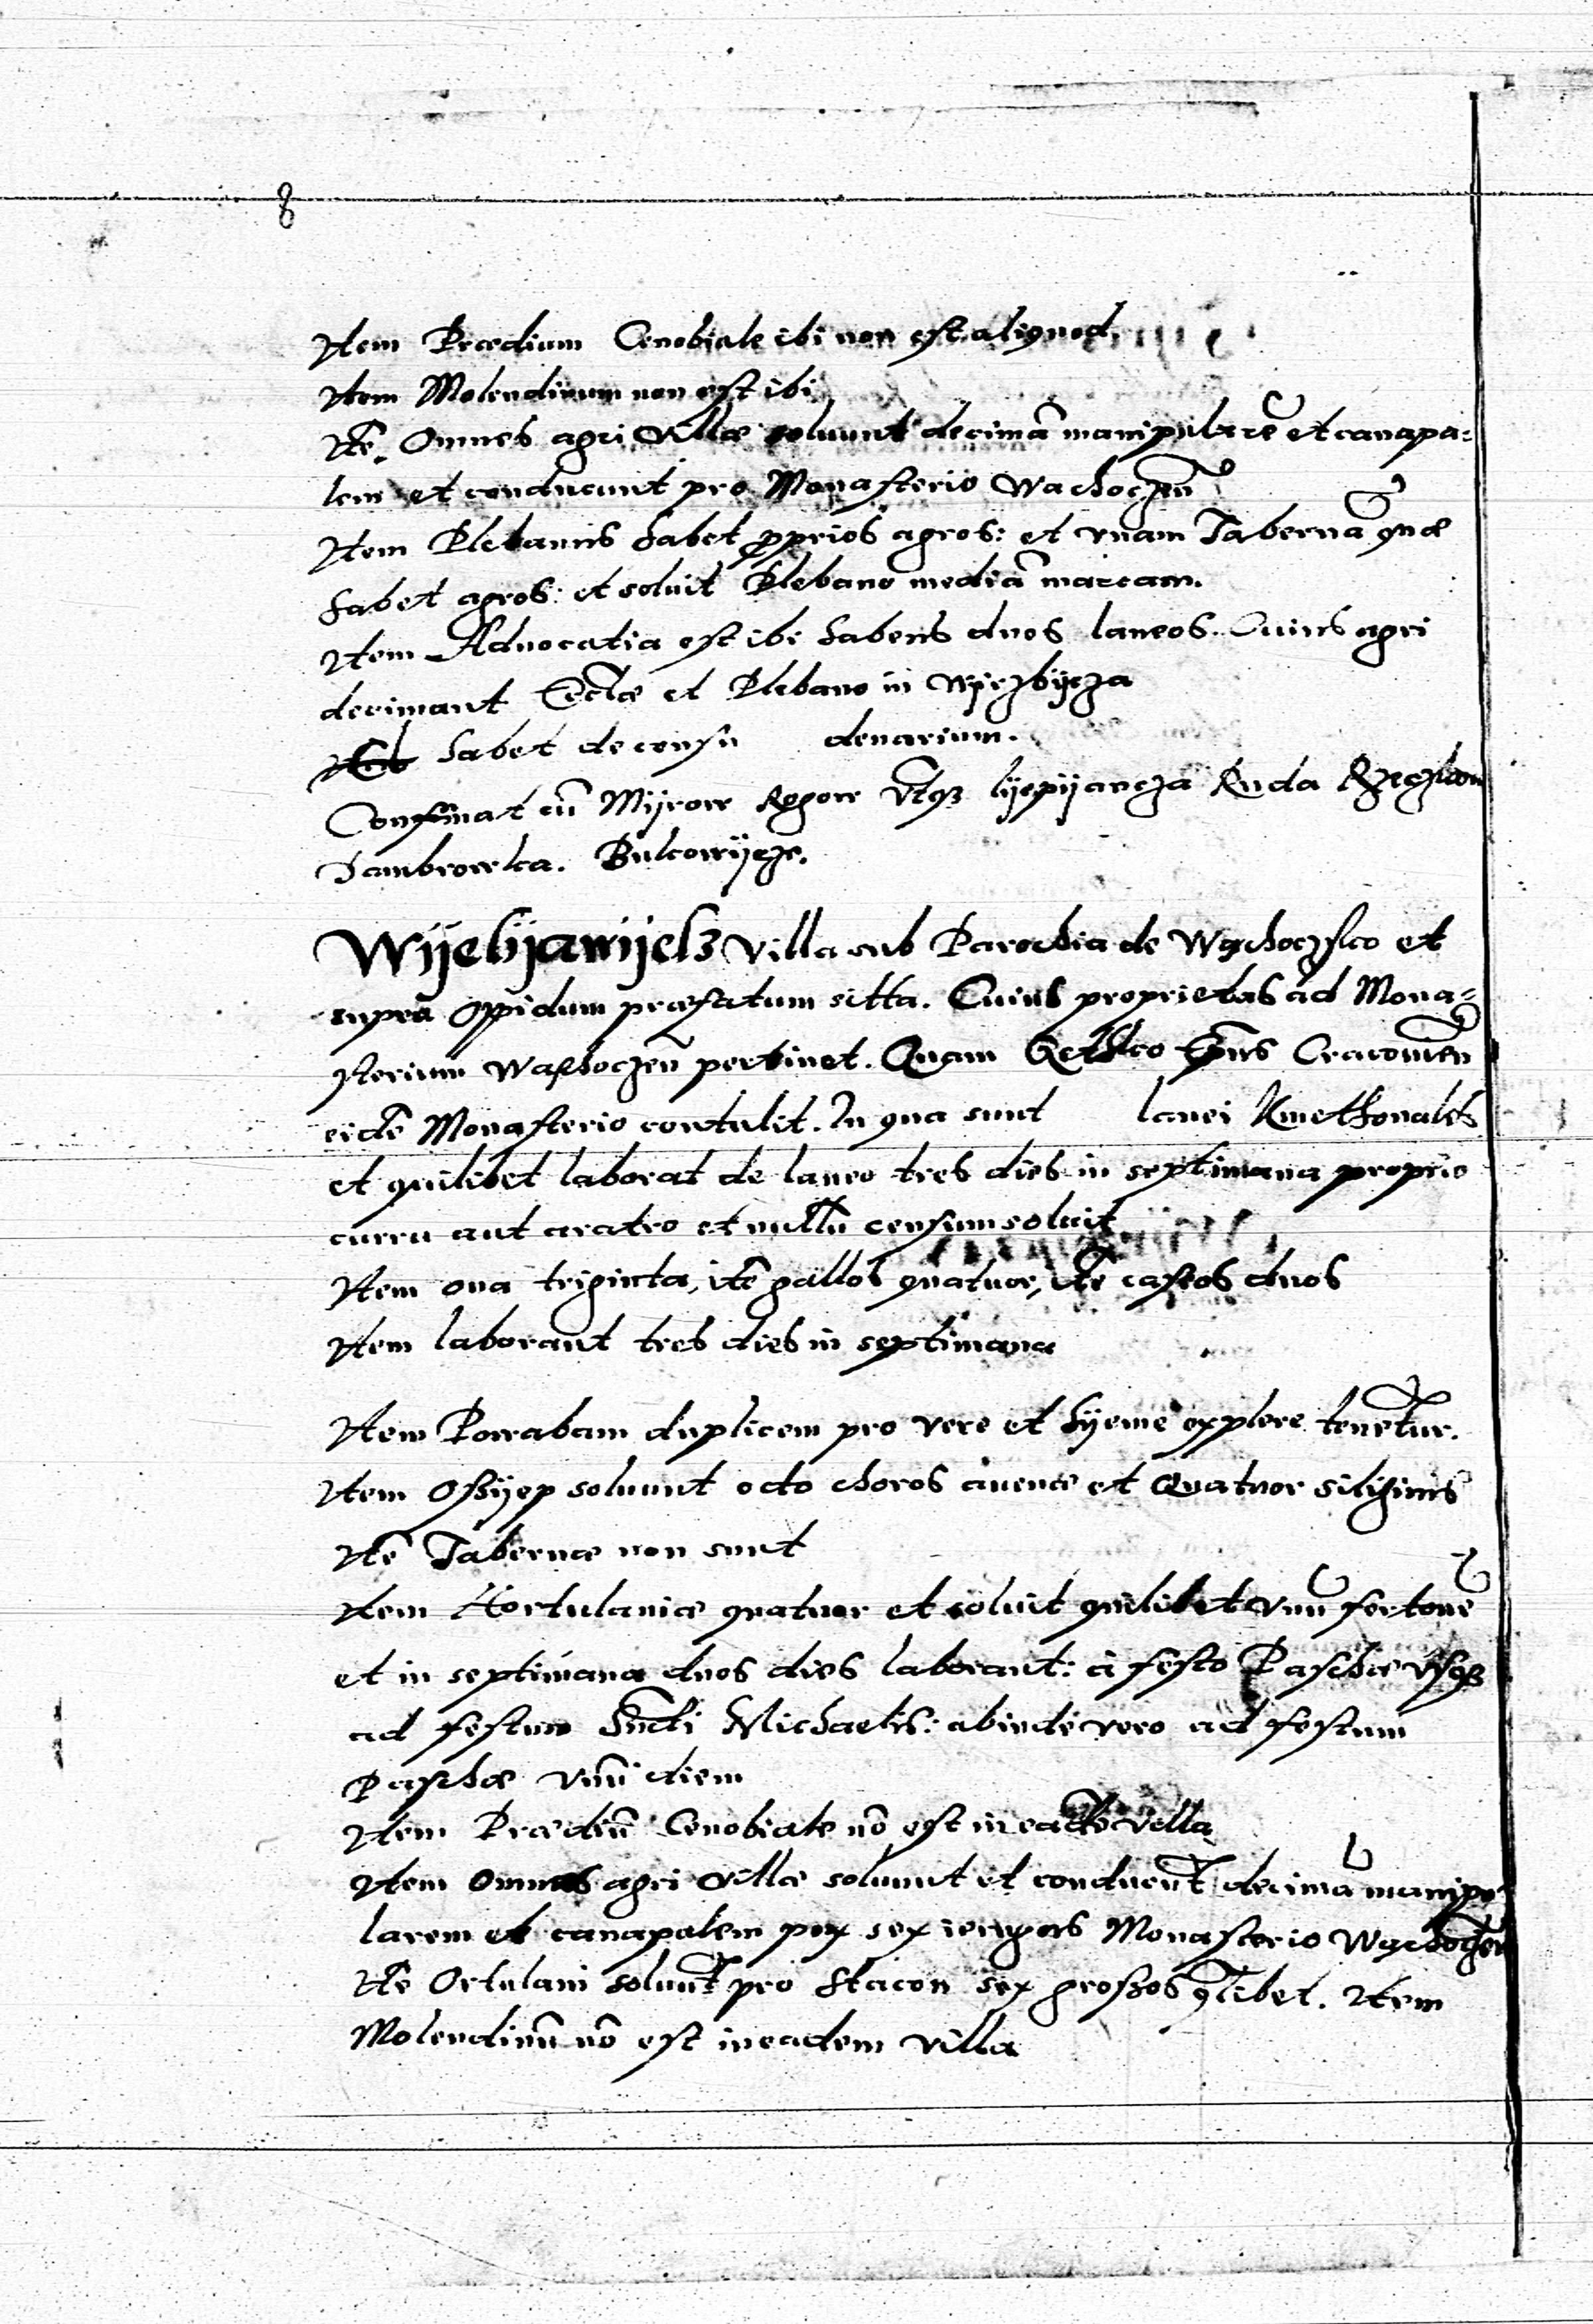 8
Item Prædium Cenobiale ibi non est aliquod
Item Molendinum non est ibi
Itē Omnes agri Villæ soluunt decimā manipularē et canapa:
lem et conducunt pro Monasterio Wachoczen̄
Item Plebanus habet ꝓprios agros: et vnam Tabernā quæ
habet agros: et soluit Plebano mediā marcam.
Item Aduocatia est ibi habens duos laneos. Cuius agri
decimant Eccłæ et Plebano in Wijrzbijcza
habet de censu denarium.
Confinat cū Mijrow Rogow vtrąȝ lijepijancza Ruda
Dambrowka. Bukowijcze.
Wijelijawijeſ3 Villa sub Parochia de Wąchoczsko et
supra oppidum præfatum sitta. Cuius proprietas ad Mona=
sterium Wachoczen̄ pertinet. Quam Gethko Ep̄us Cracouien̄
eidē Monasterio contulit. In qua sunt lanei Kmethonales
et quilibet laborat de laneo tres dies in septimana proprio
curru aut aratro et nullū censum soluit
Item oua triginta, itē gallos quatuor, itē caseos duos
Item laborant tres dies in septimana
Item Powabam duplicem pro vere et hijeme explere tenetur.
Item Oßijep soluunt octo choros auenæ et Quatuor siliginis
Itē Tabernæ non sunt
Item Hortulaniæ quatuor et soluit quilibet vnū fertonē
et in septimana duos dies laborant: à festo Paschæ vsqȝ
ad festum Sancti Michaelis: abinde vero ad festum
Paschæ vnū diem
Item Prædiū Cenobiale nō est in eadē Villa
Item Omnes agri Villæ soluunt et conducūt decimā manipu
larem et canapalem sex Monasterio Wąchoczen̄
Itē Ortulani soluūt pro Stacon sex großos qłibet. Item
Molendinū nō est in eadem Villa